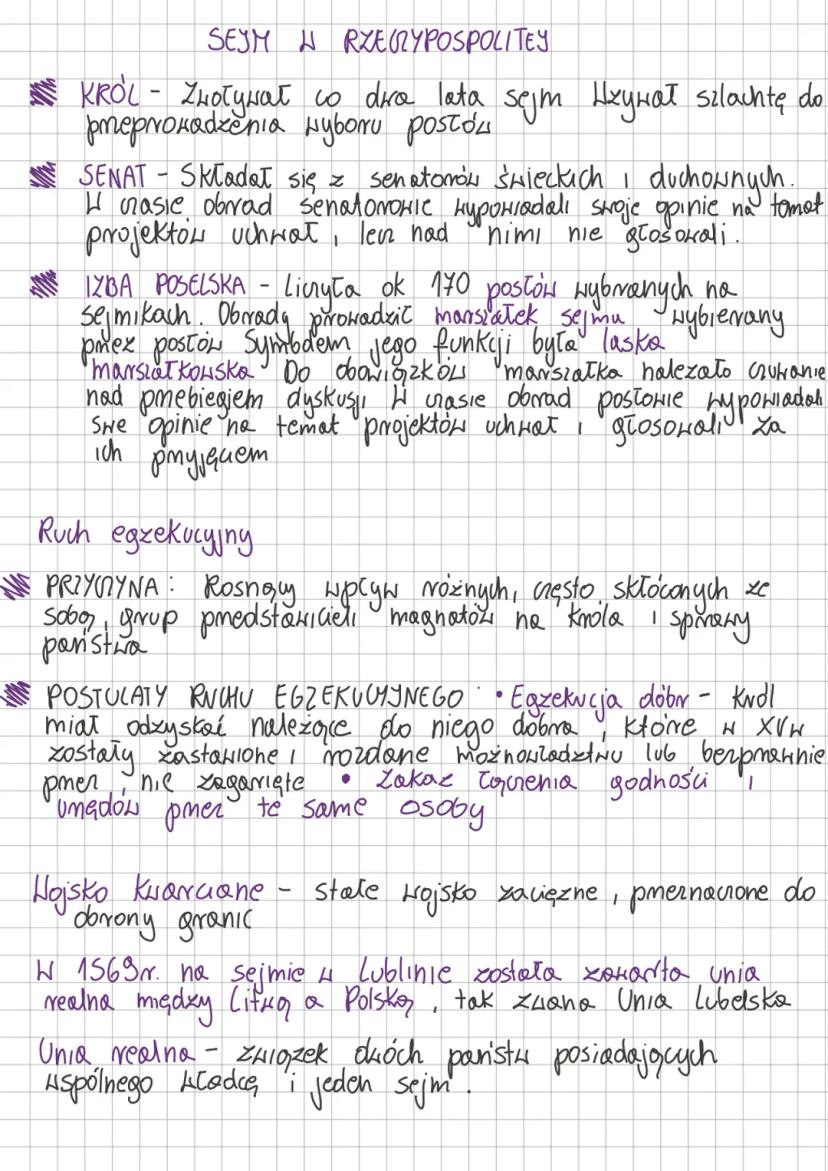 SEJM W RZECZYPOSPOLITEJ
KRÓL - Zwoływał co dwa lata sejm Wzywał szlachtę do
przeprowadzenia wyboru posłów
SENAT - Składał się z senatorów świeckich i duchownych.
W czasie obrad senatorowie wypowiadali swoje opinie na temat
projektów uchwał, lecz nad nimi nie głosowali.
IZBA POSELSKA - liczyła ok 170 posłów wybranych na
sejmikach. Obrady prowadził marszałek sejmu wybierany
przez posłów Symbolem jego funkcji była laska
marszałkowska Do obowiązków marszałka należało czuwanie
nad przebiegiem dyskusji W czasie obrad posłowie wypowiadali
swe opinie na temat projektów uchwał i głosowali za
ich przyjęciem
Ruch egzekucyjny
PRZYCZYNA: Rosnący wpływ różnych, często skłóconych ze
sobą, grup przedstawicieli magnatów na króla i sprawy
państwa
POSTULATY RUCHU EGZEKUCYJNEGO: • Egzekucja dóbr - król
miał odzyskać należące do niego dobra, które w XVw
zostały zastawione i rozdane możnowładztwu lub bezprawnie
przez nie zagarnięte • Zakaz łączenia godności i
urzędów przez te same osoby
Wojsko kwarciane - stałe wojsko zaciężne, przeznaczone do
obrony granic
W 1569r. na sejmie w Lublinie została zawarta unia
realna między Litwą a Polską, tak zwana Unia Lubelska
Unia realna - związek dwóch państw posiadających
wspólnego władcę i jeden sejm.